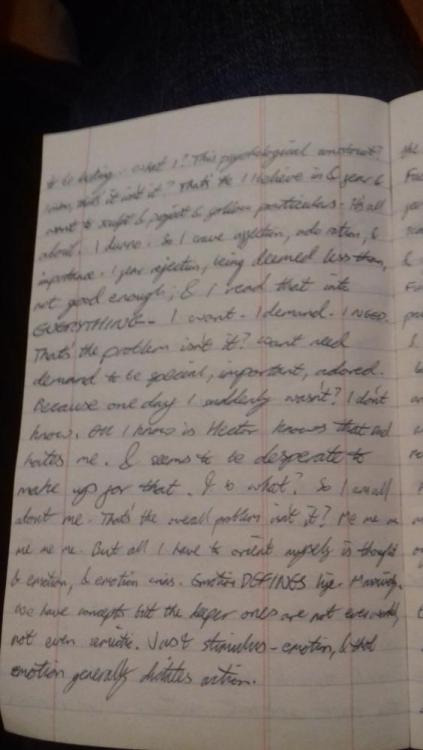 to be - what I? This psychological construct?
that's it isn't it? That's the I I believe in & fear &
want to sculpt & project & particulars. It's all
about. I dunno. So I crave affection, adoration, &
importance. I fear rejection, being deemed less than,
not good enough; & I read that into
EVERYTHING. I want - I demand. I NEED.
That's the problem isn't it? want need
demand to be special, important, adored.
Because one day I suddenly wasn't? I don't
know. All I know is Hector knows that and
hates me. & seems to be desperate to
make up for that. & is what? So I am all
about me. That's the overall problem isn't it? Me me m
me me me. But all I have to orient myself is thought
& emotion, & emotion wins. Emotion DEFINES life.
we have concepts but the deeper ones are not even
not even semiotic. Just stimulus - emotion, & that
emotion generally dictates action.